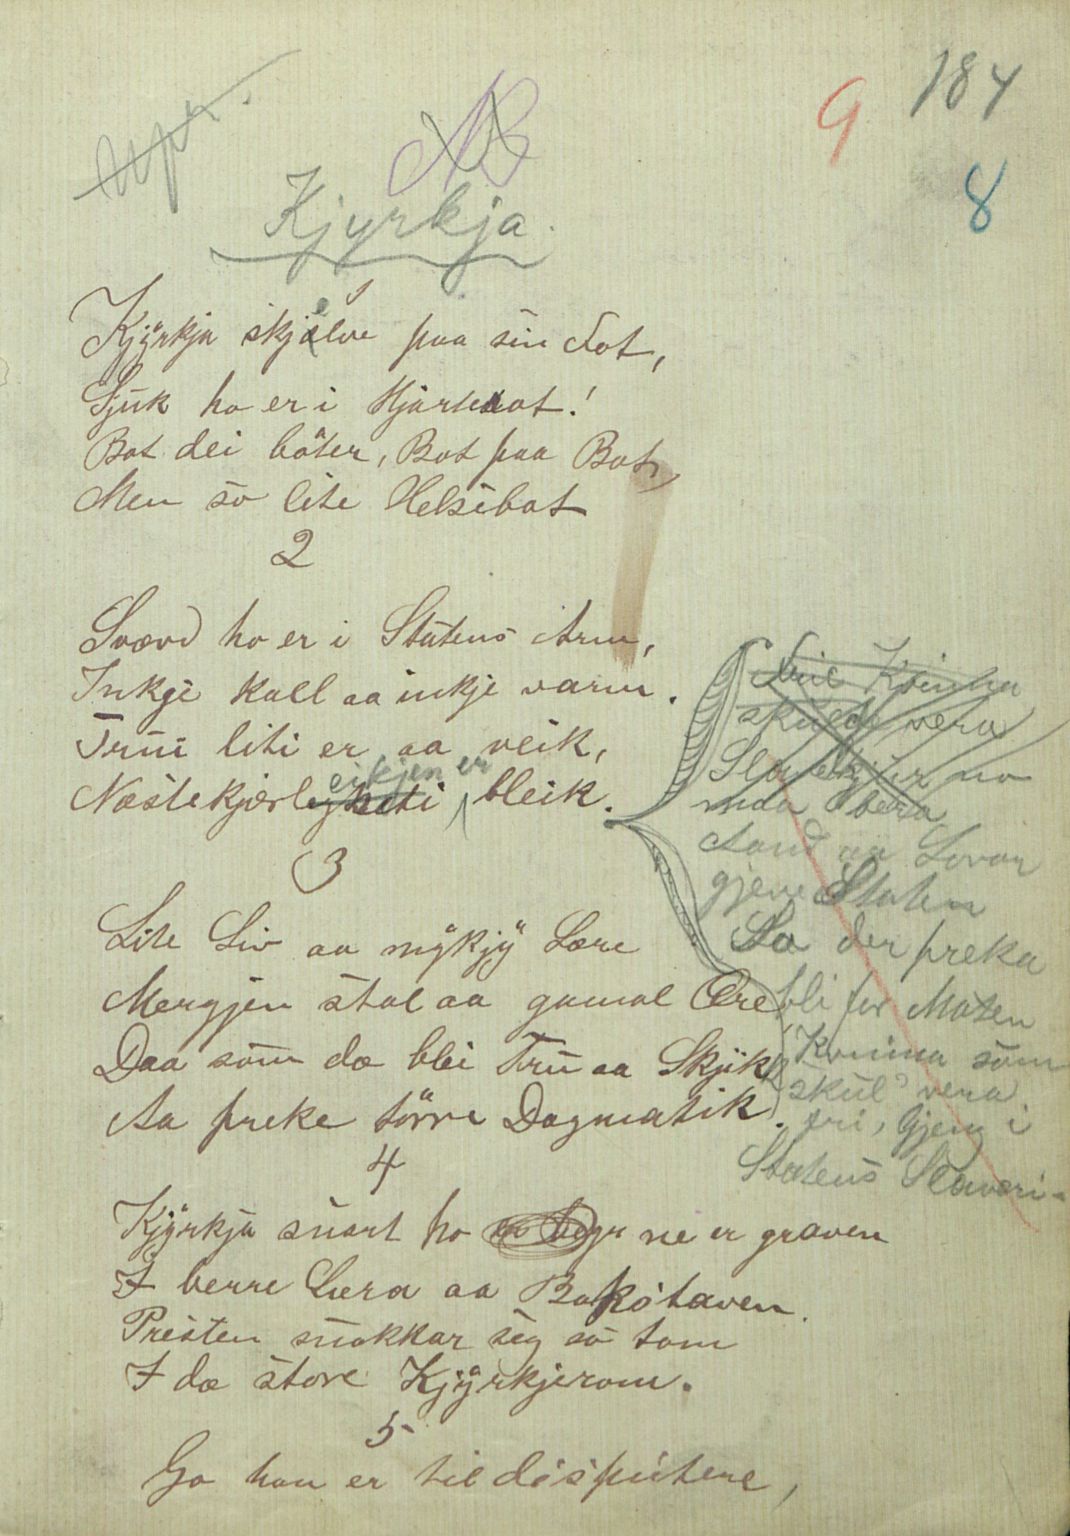 184
9
8
Kjyrkja.
1
Kjÿrkja skjelve paa sin Fot,
Sjuk ho er i Hjarterot!
Bot dei böter, Bot paa Bot,
Men so lite Helsibot
2
Sværd ho er i Statens Arm,
Inkje kall aa inkje varm.
Trui liti er aa veik,
Næstekjærleikjen er bleik.
3
Lite Liv aa mÿkjÿ Lære
Mergjen stal aa gamal Ære,
Daa som dæ blei Tru aa Skjik
Aa preke törre Dogmatik.
4
Kjÿrkja snart ho ne er graven
I berre Læra aa Bokstaven.
Presten snakkar seg so tom
I dæ store Kjÿrkjerom.
5
Go han er til disputere,
Frie Kvinna
skulde vera
no
maa bera
Aand aa Lovar
gjeve Staten
So der preka
bli for Maten
Kvinna som
skul' vera
fri, Gjeng i
Statens Slaveri